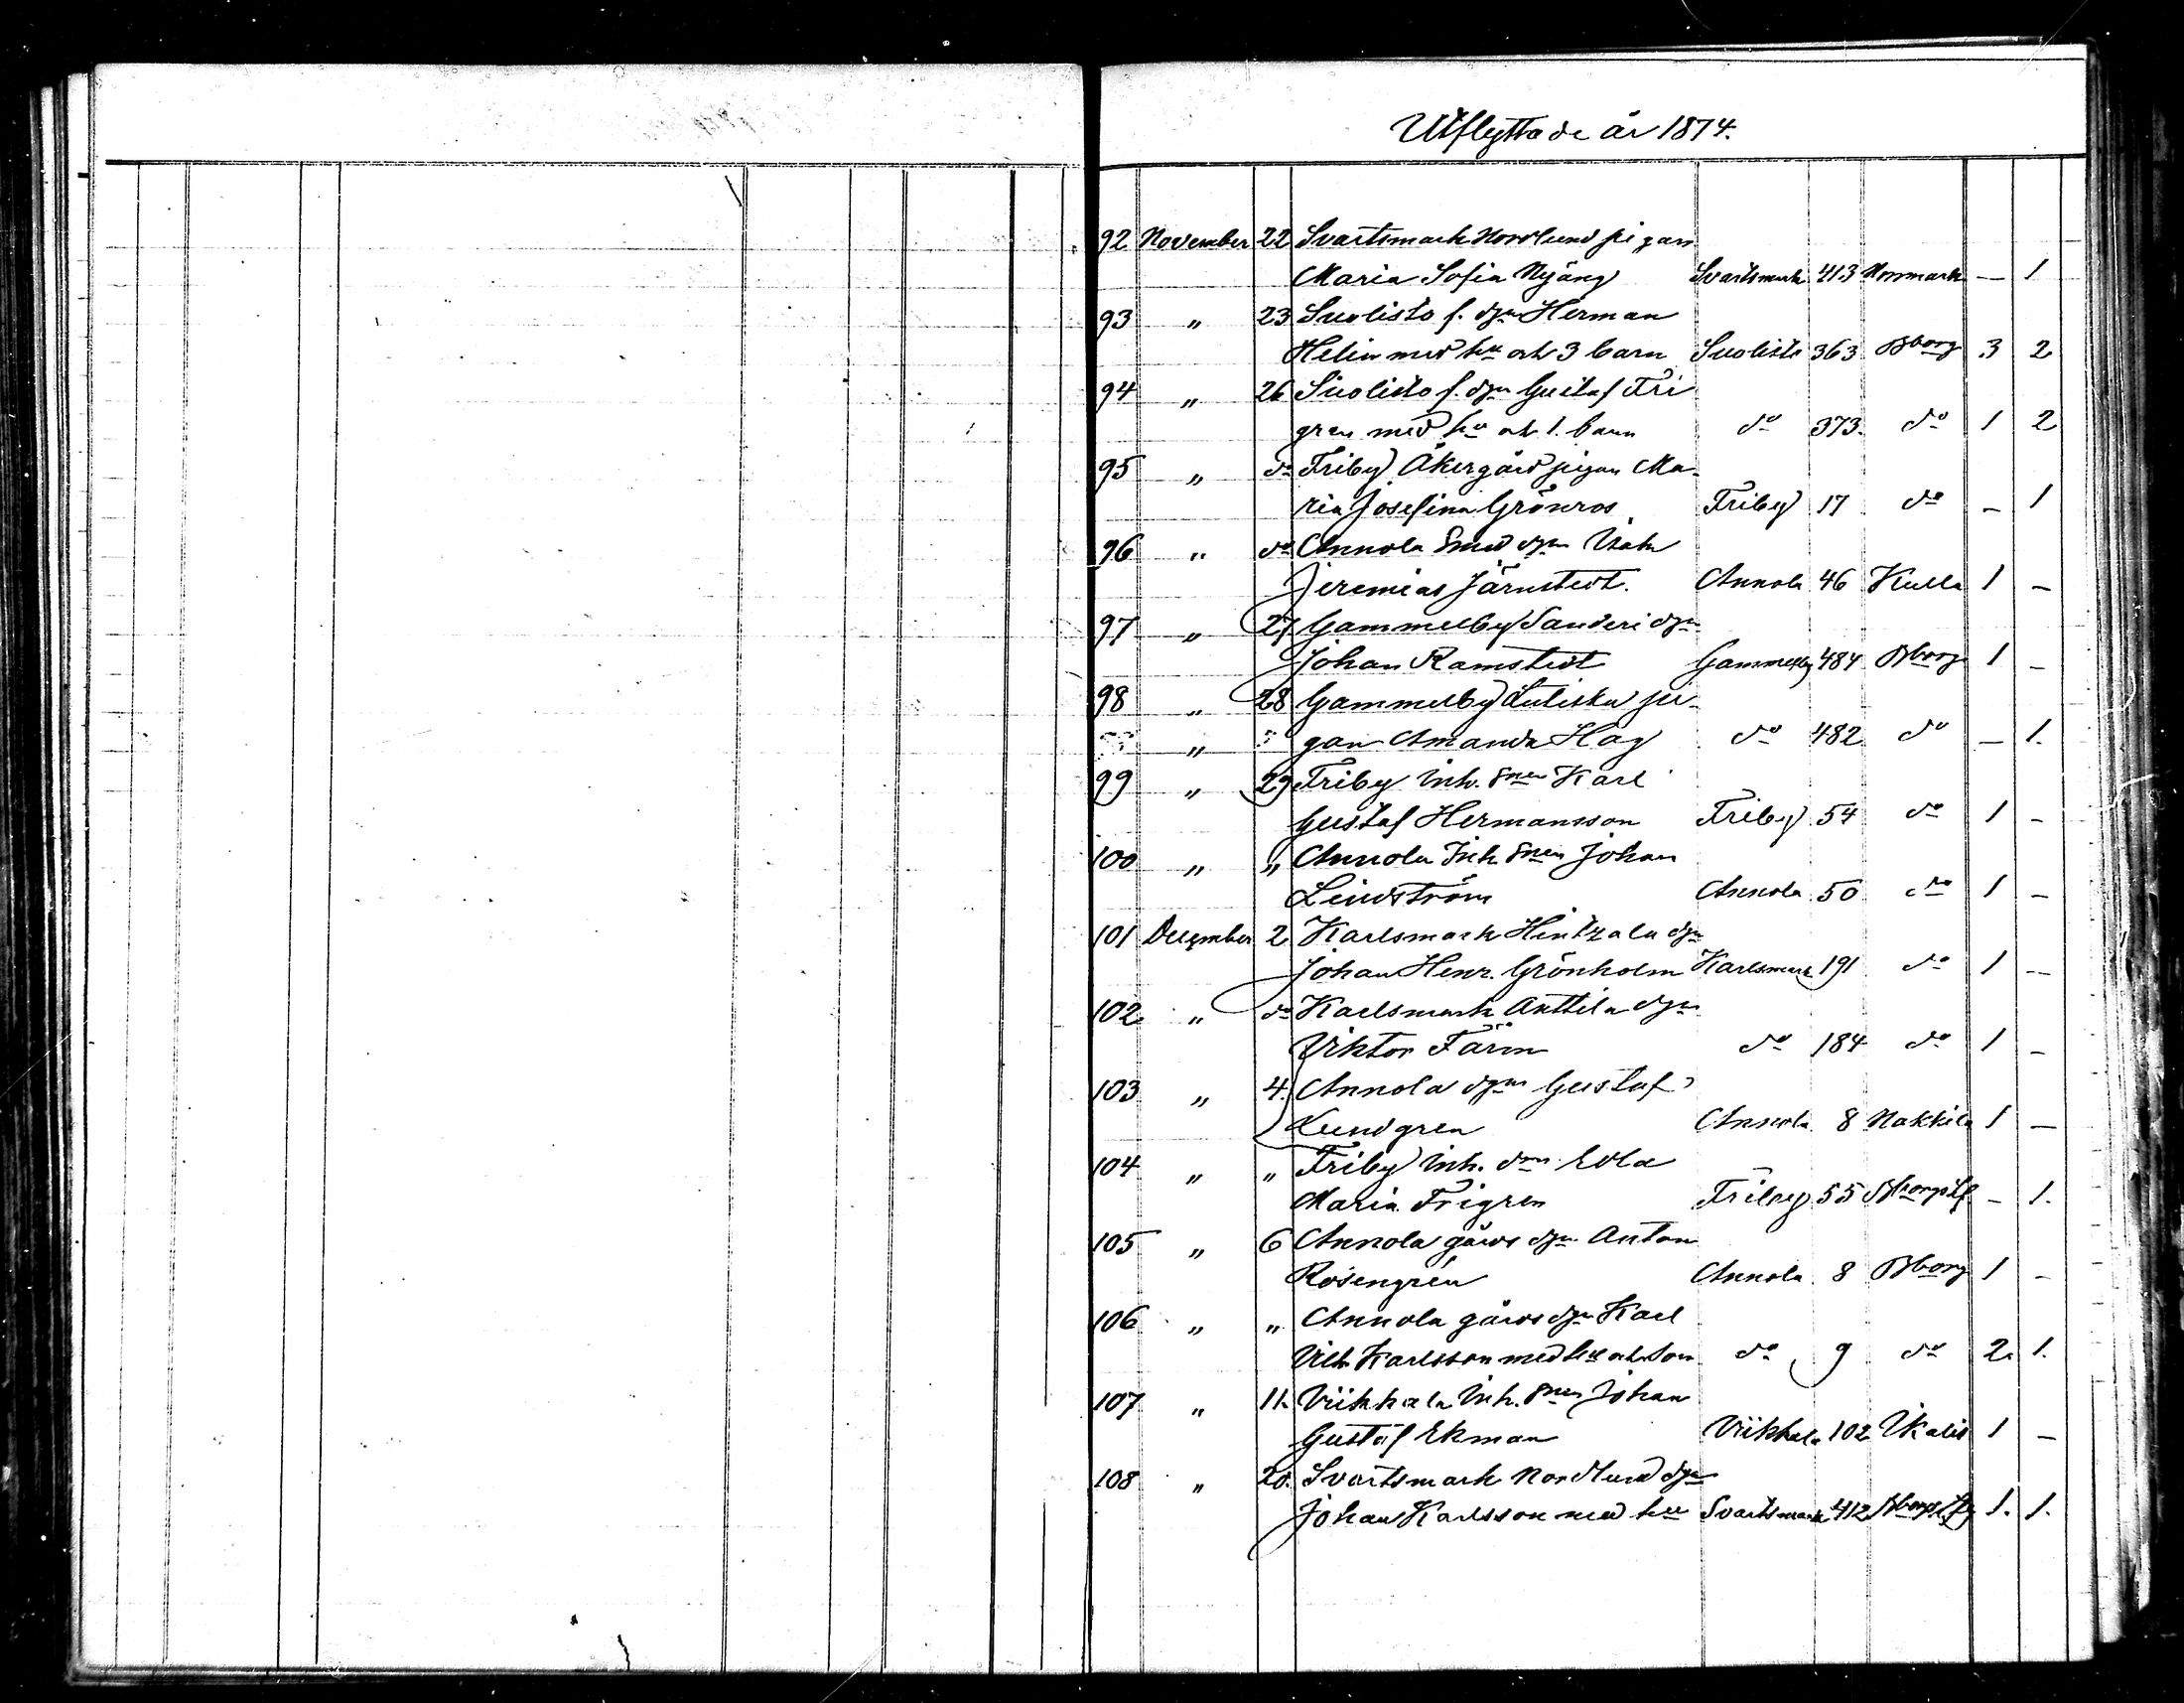 Utflyttade år 1874.
92 November 22 Svartsmark Norrlund pigan
Maria Sofia Nyäng Svartsmark 413 Norrmark — 1
93 " 23 Suolisto f. dgn Herman
Helin med hu och 3 barn Suolisto 363 Bborg 3 2
94 " 26 Suolisto f. dgn Gustaf Fri
gren med hu och 1. barn do 373 do 1 2
95 " do Friby Åkergård pigan Ma-
ria Josefina Grönros Friby 17 do — 1
96 " do Annola Smed dgn
Jeremias Järnstedt. Annola 46 Kulla 1 —
97 " 27 Gammelby Sanderi dgn
Johan Ramstedt Gammelby 484 Bborg 1 —
98 " 28 Gammelby pi-
" gan Amanda Hag do 482 do — 1.
99 " 29 Friby inh. snen Karl
Gustaf Hermansson Friby 54 do 1 —
100 " " Annola Inh snen Johan
Lindström Annola 50 do 1 —
101 December 2 Karlsmark Hintzala dgn
Johan Henr. Grönholm Karlsmark 191 do 1 —
102 " do Karlsmark Anttila dgn
Viktor Färm do 184 do 1 —
103 " 4. Annola dgn Gustaf
Lundgren Annola 8 Nakkila 1 —
104 " " Friby inh. dn Edla
Maria Frigren Friby 55 — 1.
105 " 6 Annola gårds dgn Anton
Rosengrén Annola 8 Bborg 1 —
106 " " Annola gårds dgn Karl
Vilh Karlsson med hu och son do 9 do 2. 1.
107 " 11. Viikkala inh. snen Johan
Gustaf Ekman Viikkala 102 Ikalis 1 —
108 " 20. Svartsmark Nordlund dgn
Johan Karlsson med hu Svartsmark 412 1. 1.